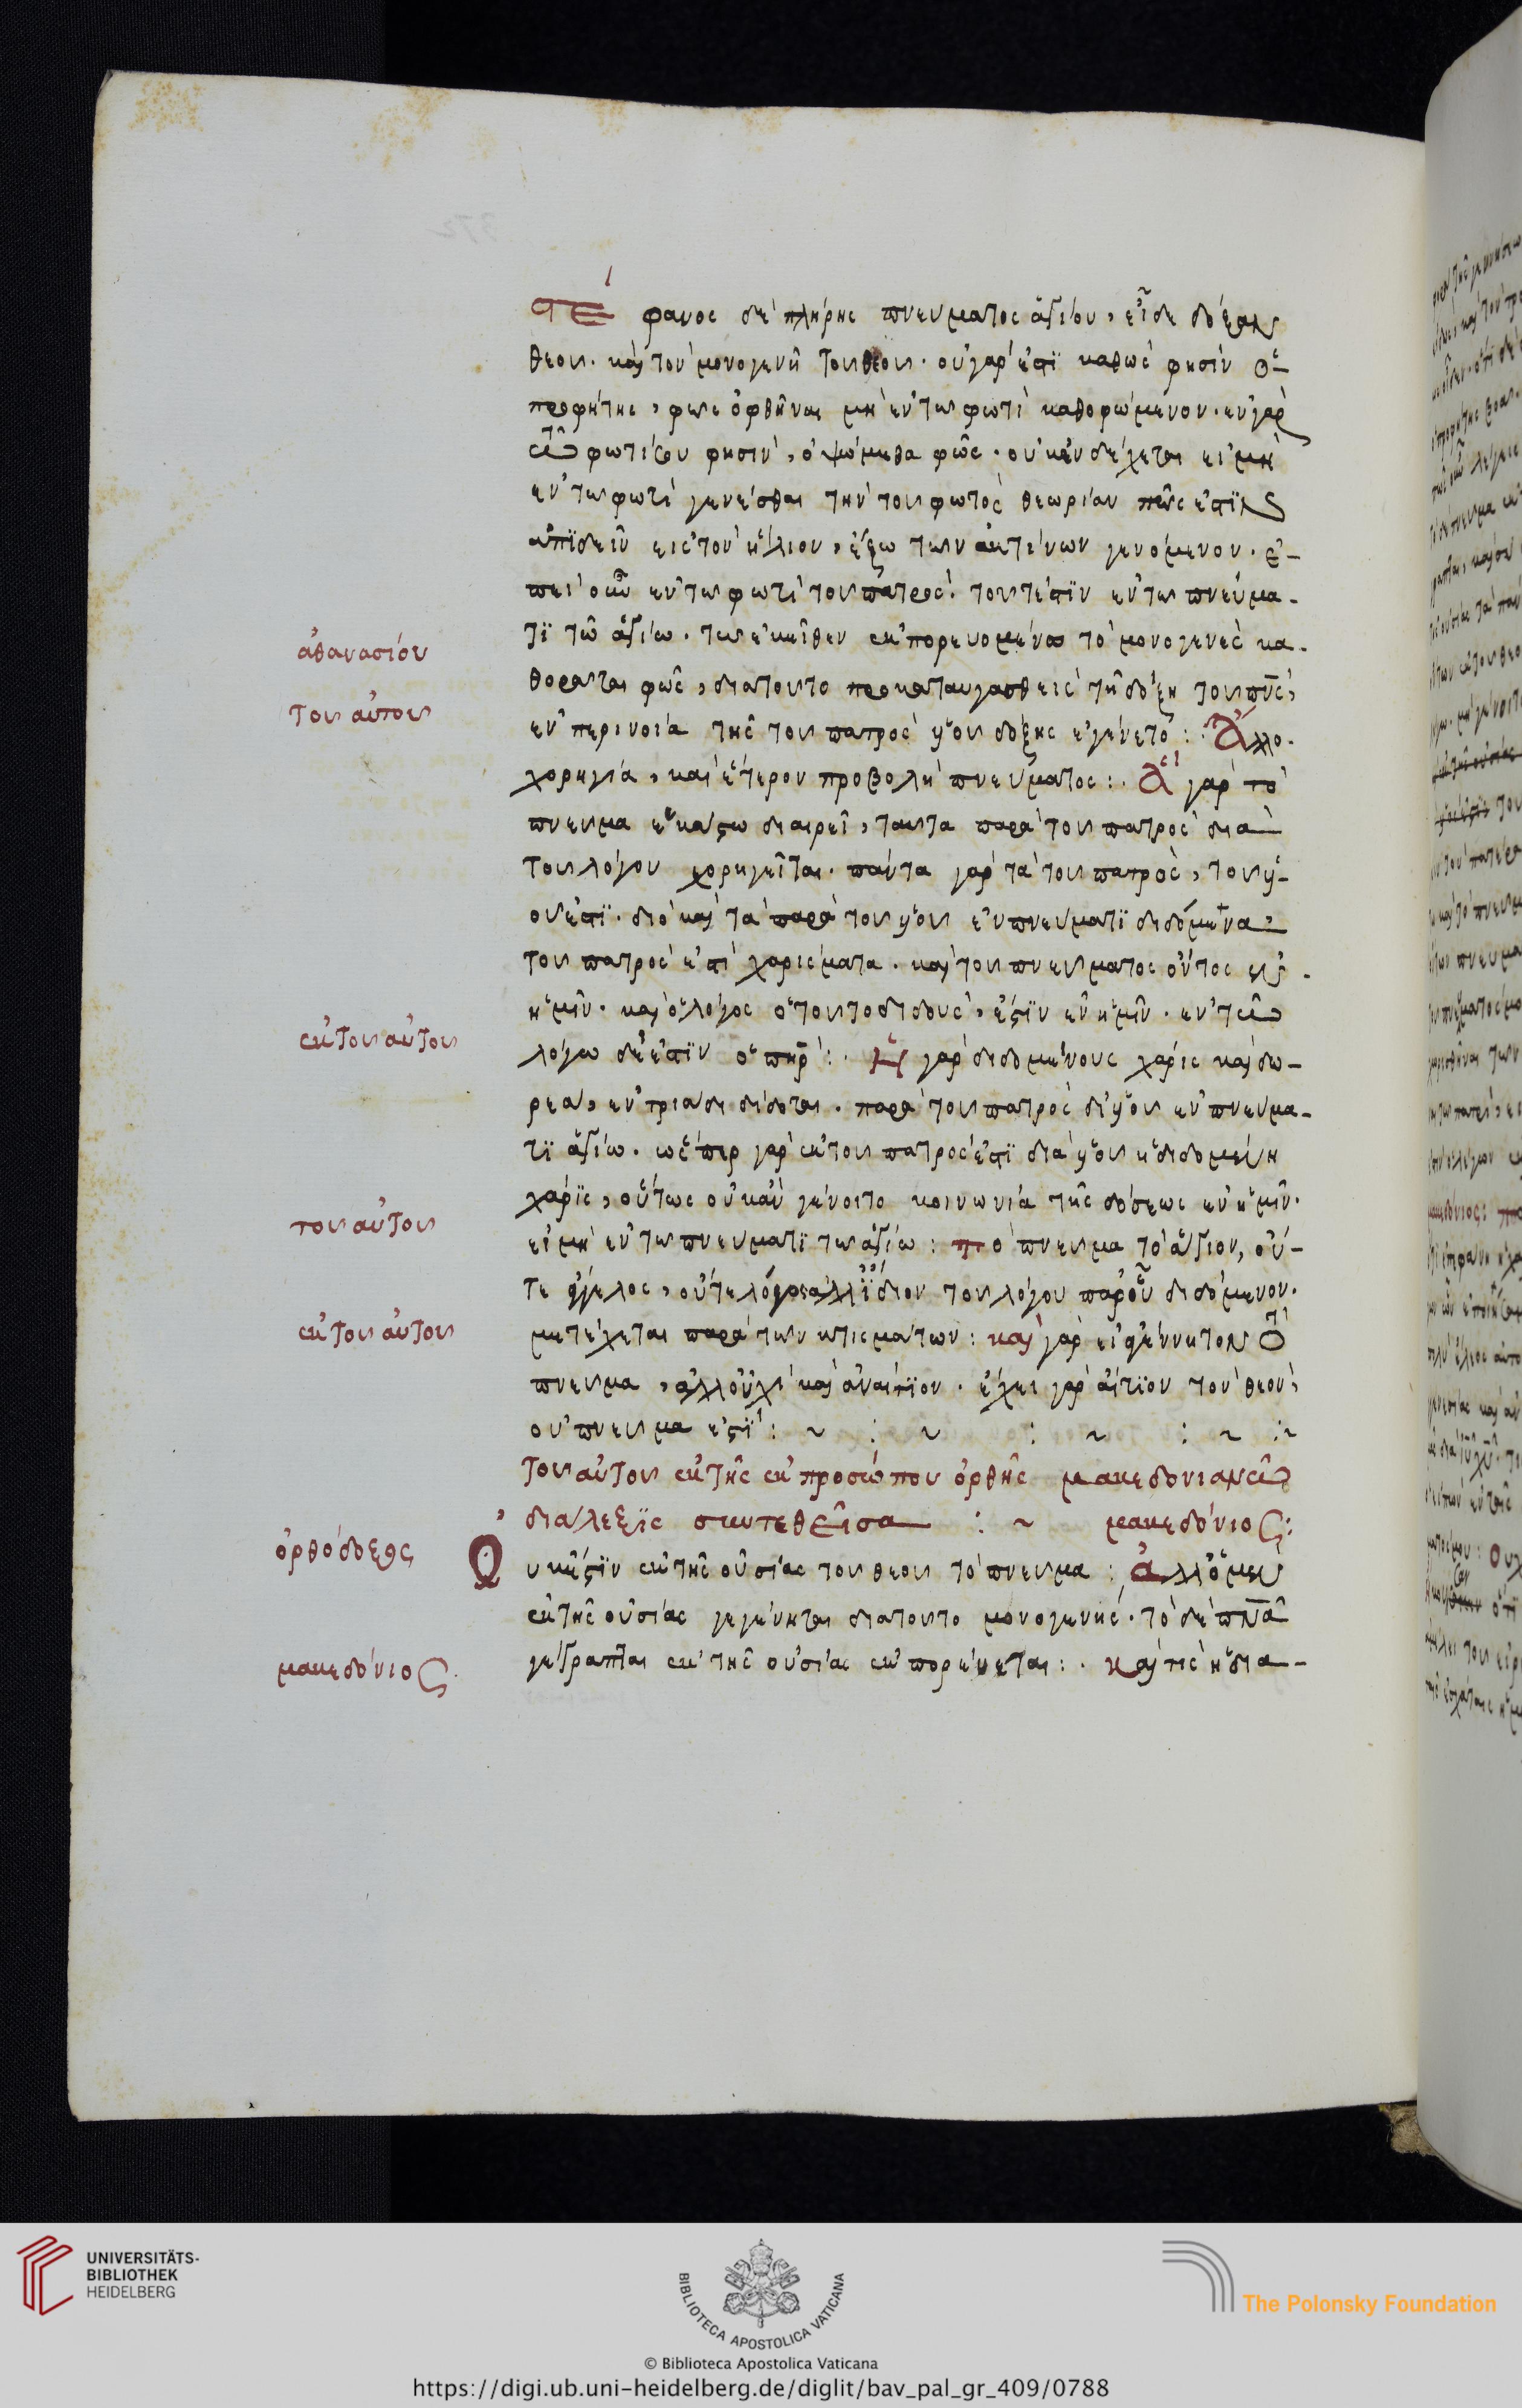 Στέφανος δὲ πλήρης πνεύματος ἁγίου, εἶδε δόξαν
θεοῦ· καὶ τὸν μονογενῆ τοῦ θεοῦ· οὐ γάρ ἐστι καθώς φησιν ὁ
προφήτης, φῶς ὀφθῆναι μὴ ἐν τῶ φωτὶ καθορώμενον· ἐν γὰρ
τῶ φωτί σου φησὶν, ὀψώμεθα φῶς· οὐκ ἐνδέχεται εἰ μὴ
ἐν τῶ φωτὶ γενέσθαι τὴν τοῦ φωτὸς θεωρίαν πῶς ἐστὶν
ἀπιδεῖν εἰς τὸν ἥλιον, ἔξω τῶν ἀκτίνων γενόμενον· ἐ-
πεὶ οὖν ἐν τῶ φωτὶ τοῦ πατρὸς· τουτέστιν ἐν τῶ πνεύμα-
τι τῶ ἁγίω· τῶ ἐκεῖθεν ἐκπορευομένω τὸ μονογενὲς κα-
θορᾶται φῶς, διατοῦτο προκαταυγασθεὶς τῆ δόξη τοῦ πνς,
ἐν περινοία τῆς τοῦ πατρὸς υἱοῦ δόξης ἐγένετο: Ἄλλο
χορηγία, καὶ ἕτερον προβολὴ πνεύματος:· Ἃ γὰρ τὸ
πνεῦμα ἑκάστω διαιρεῖ, ταῦτα παρὰ τοῦ πατρὸς διὰ
τοῦ λόγου χορηγεῖται· πάντα γὰρ τὰ τοῦ πατρὸς, τοῦ υἱ-
οῦ ἐστι· διὸ καὶ τὰ παρὰ τοῦ υἱοῦ ἐν πνεύματι διδόμενα,
τοῦ πατρός ἐστι χαρίσματα· καὶ τοῦ πνεύματος ὄντος ἐν
ἡμῖν· καὶ ὁ λόγος ὁ τοῦτο διδοὺς, ἐστὶν ἐν ἡμῖν· ἐν τῶ
λόγω δέ ἐστιν ὁ πηρ:· Ἡ γὰρ διδομένους χάρις καὶ δω-
ρεὰ, ἐν τριάδι δίδοται· παρὰ τοῦ πατρὸς δι' υἱοῦ ἐν πνεύμα-
τι ἁγίω· ὥσπερ γὰρ ἐκ τοῦ πατρός ἐστι διὰ υἱοῦ ἡ διδομένη
χάρις, οὕτως οὐκ ἂν γένοιτο κοινωνία τῆς δόσεως ἐν ἡμῖν·
εἰ μὴ ἐν τῶ πνεύματι τῶ ἁγίω: το πνεῦμα τὸ ἅγιον, οὔ-
τε ἄγγελος, οὔτε λόγος ἀλλ' ἴδιον τοῦ λόγου παρ' οὗ διδόμενον·
μετέχεται παρὰ τῶν κτισμάτων: καὶ γὰρ εἰ ἀγέννητον τὸ
πνεῦμα, ἀλλ' οὐχὶ καὶ ἀναίτιον· ἔχει γὰρ αἴτιον τὸν θεὸν,
οὗ πνεῦμα ἐστί: ~ : ~ : ~ : ~ :~
τοῦ αὐτοῦ ἐκ τῆς ἐκ προσώπου ὀρθῆς μακεδονιανῶ
διάλεξις συντεθεῖσα : ~ μακεδόνιος:
Οὐκ ἔστιν ἐκ τῆς οὐσίας τοῦ θεοῦ τὸ πνεῦμα: ἀλλ' ὁ μὲν
ἐκ τῆς οὐσίας γεγένηται διατοῦτο μονογενής· τὸ δὲ πνα
γέγραπται ἐκ τῆς οὐσίας ἐκπορεύεται:· καὶ τίς ἡ δια-
ἀθανασίου
τοῦ αὐτοῦ
ἐκ τοῦ αὐτοῦ
τοῦ αὐτοῦ
ἐκ τοῦ αὐτοῦ
ὀρθόδοξος
μακεδόνιος
UNIVERSITÄTS-
BIBLIOTHEK
HEIDELBERG
BIBLIOTECA APOSTOLICA VATICANA
The Polonsky Foundation
© Biblioteca Apostolica Vaticana
https://digi.ub.uni-heidelberg.de/diglit/bav_pal_gr_409/0788